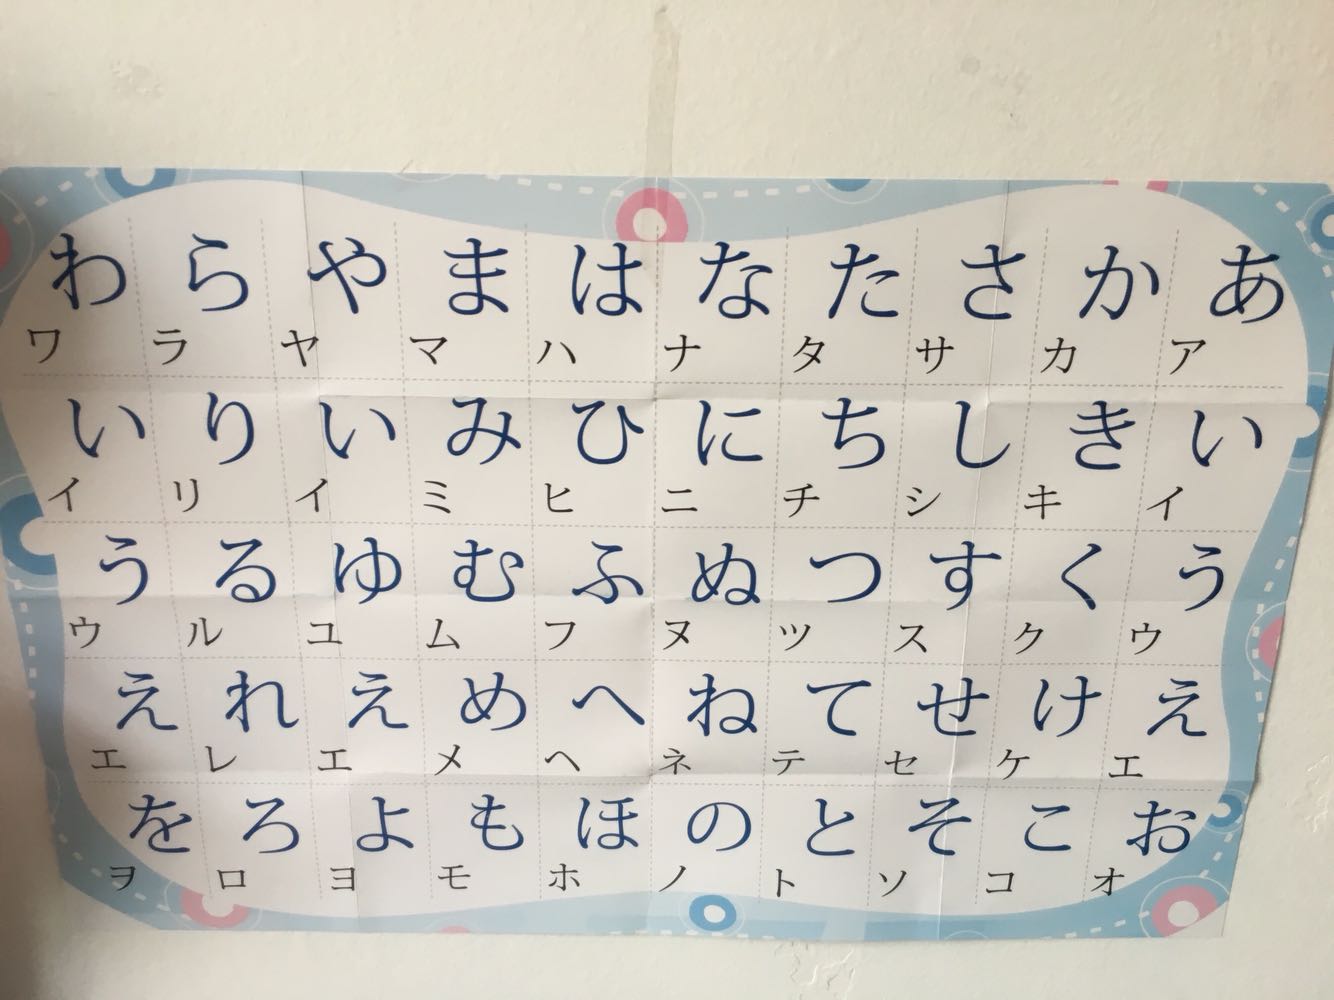 わ ら や ま は な た さ か あ
ワ ラ ヤ マ ハ ナ タ サ カ ア
い り い み ひ に ち し き い
イ リ イ ミ ヒ ニ チ シ キ イ
う る ゆ む ふ ぬ つ す く う
ウ ル ユ ム フ ヌ ツ ス ク ウ
え れ え め へ ね て せ け え
エ レ エ メ ヘ ネ テ セ ケ エ
を ろ よ も ほ の と そ こ お
ヲ ロ ヨ モ ホ ノ ト ソ コ オ